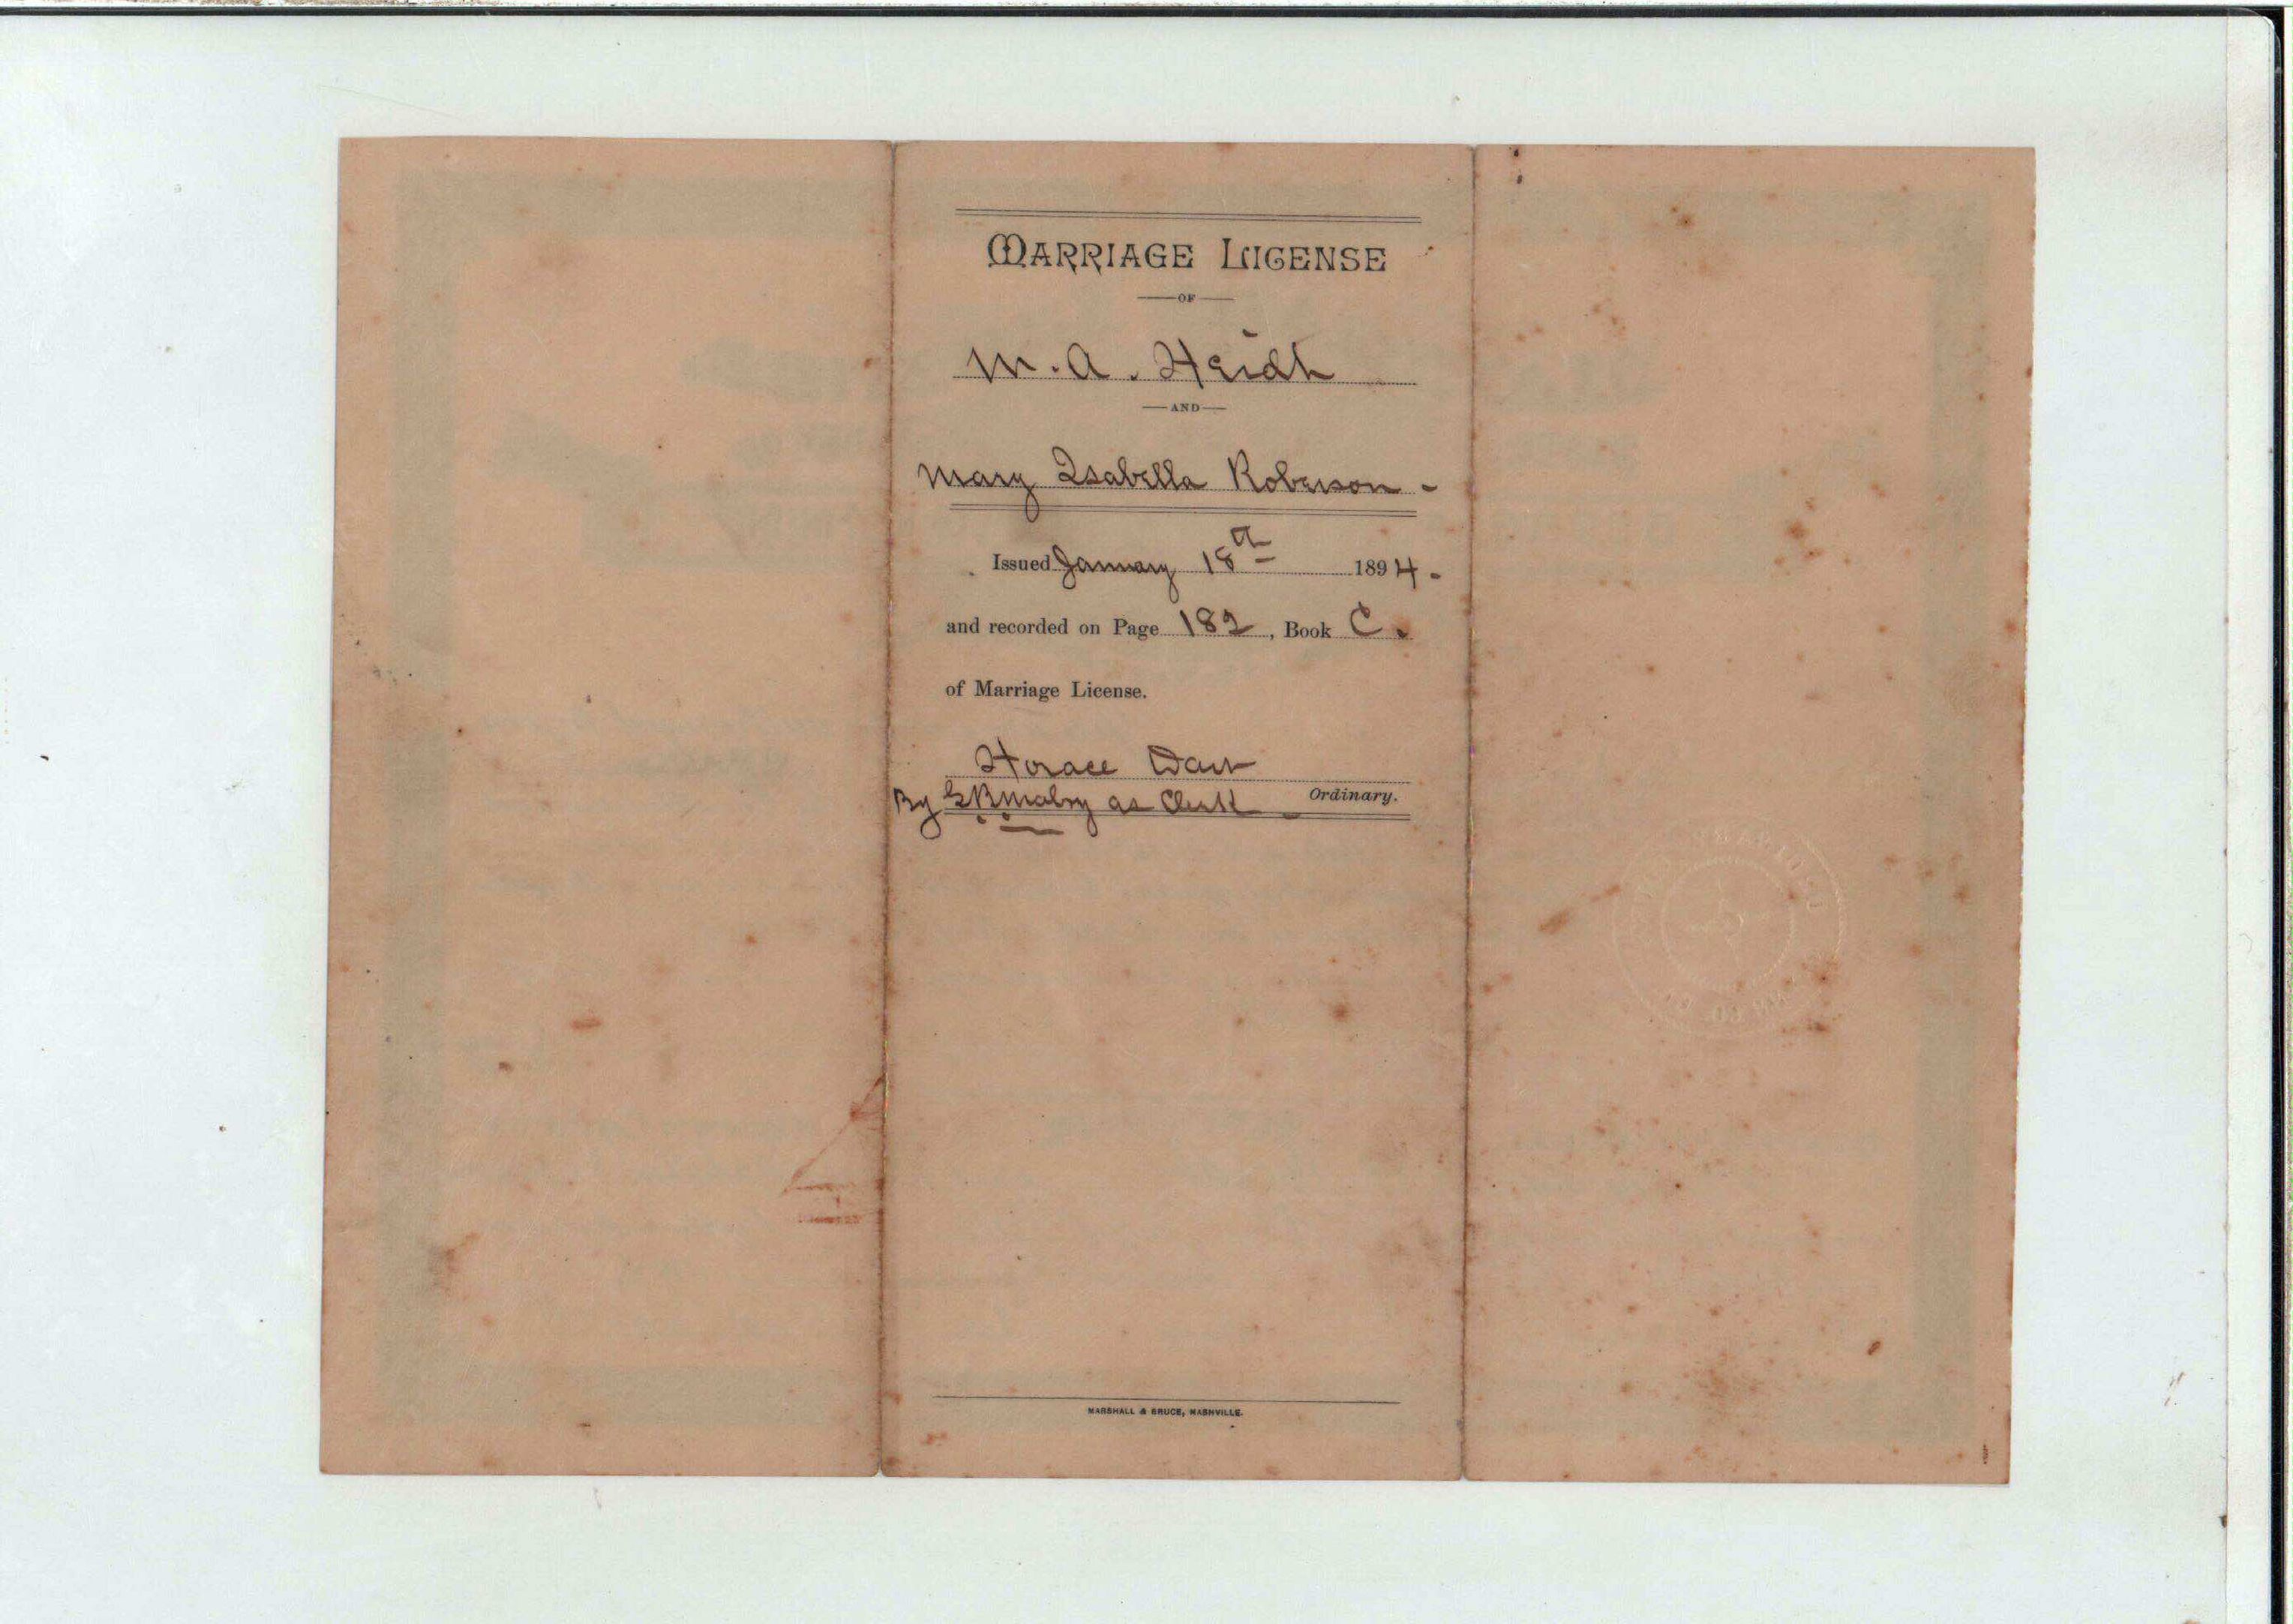 MARRIAGE LICENSE
OF
M. A. Heidt
AND
Mary Isabella Roberson -
Issued January 18th 1894.
and recorded on Page 182, Book C.
of Marriage License.
Horace Dart
Ordinary.
By as Clerk
MARSHALL & BRUCE, NASHVILLE.